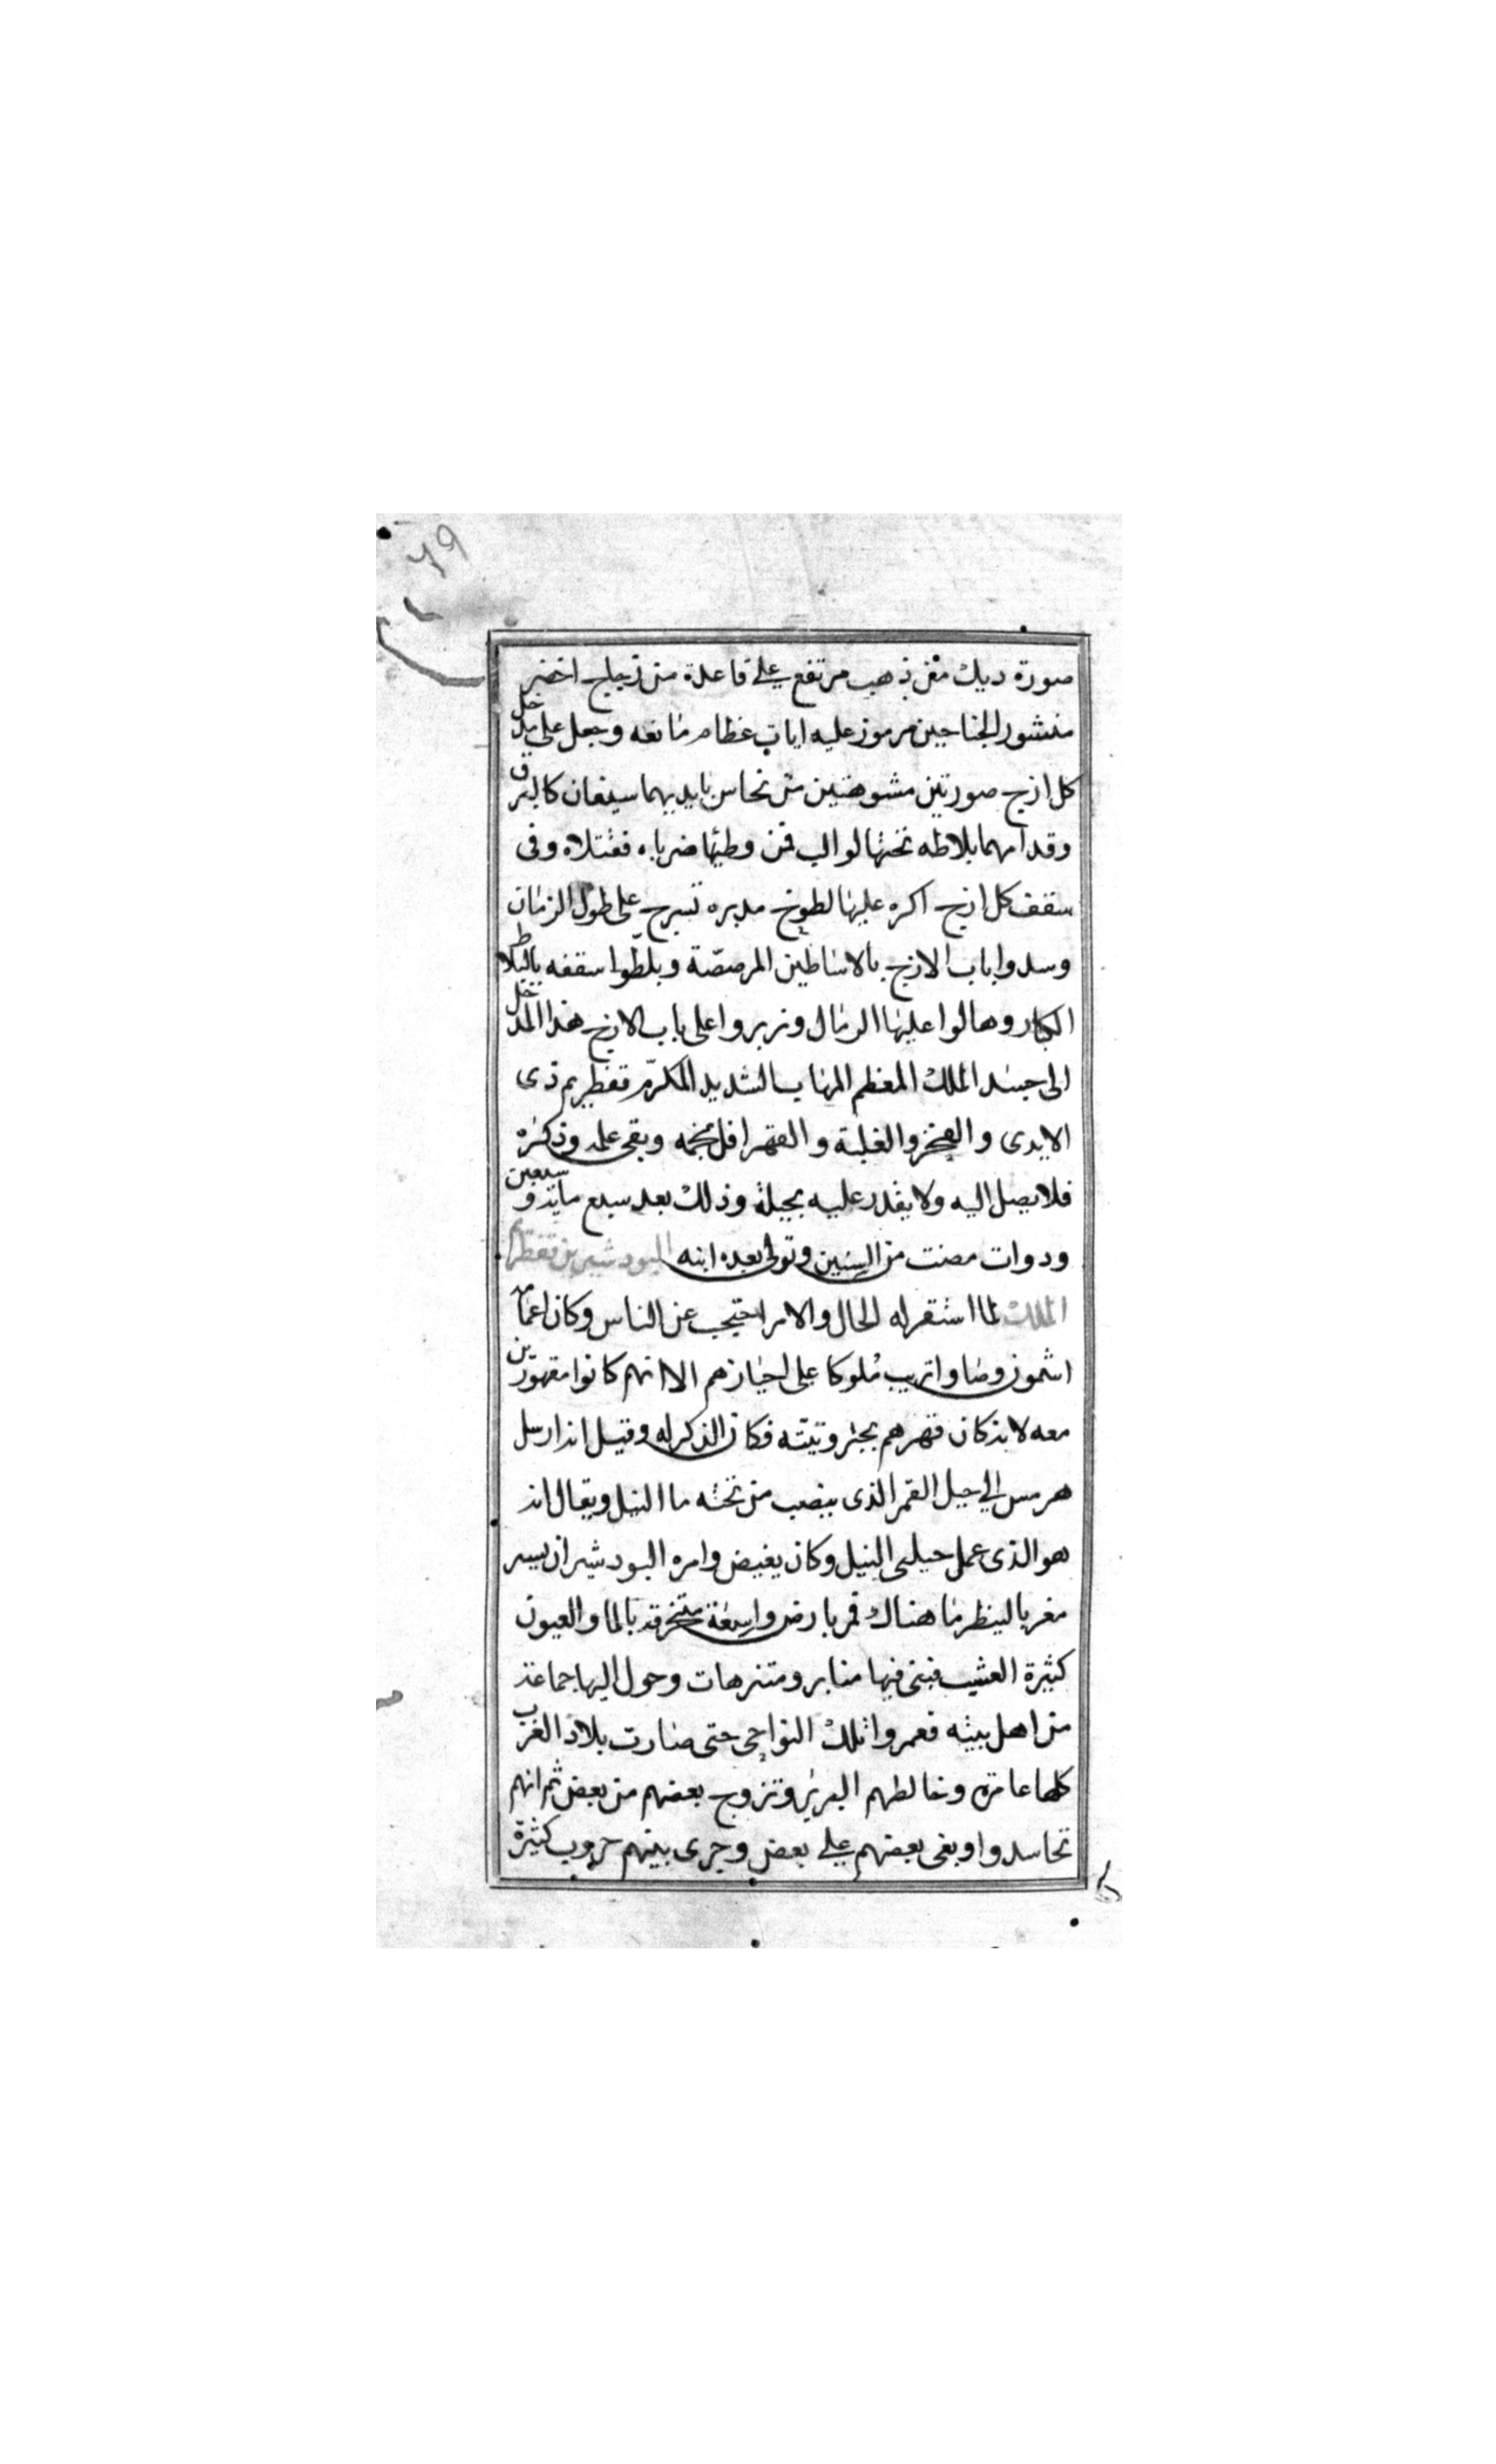 ٧٩
صورة ديك من ذهب مرتفع على قاعدة من زجاج اخضر
منشور الجناحين مرموز عليه ايات عظام مانعه وجعل على مدخل
كل ازج صورتين مشوهتين من نحاس بايديهما سيفان كالبرق
وقدامهما بلاطه تحتها لوالب فمن وطيها ضرباه فقتلاه وفى
سقف كل ازج اكره عليها لطوخ مدبره تسرج على طول الزمان
وسدوا باب الازج بالاساطين المرصصة وبلطوا سقفه بالبلاط
الكبار وهالوا عليها الرمال وزبروا على باب الازج هذا المدخل
الى جسد الملك المعظم المهاب الشديد المكرم قفطريم ذى
الايدى والفخر والغلبة والقهر افل نجمه وبقى علمه وذكره
فلا يصل اليه ولا يقدر عليه بحيلة وذلك بعد سبع ماية وسبعين
ودوات مضت من السنين وتولى بعده ابنه البودشير بن قفطريم
الملك لما استقر له الحال والامر احتجب عن الناس وكان اعمامه
اشمون وصا واتريب ملوكا على احيازهم الا انهم كانوا مقهورين
معه لانه كان قهرهم بجبروتيته فكان الذكر له وقيل انه ارسل
هرمس الى جبل القمر الذى ينصب من تحته ما النيل ويقال انه
هو الذى عمل حيلى النيل وكان يغيض وامره البودشير ان يسير
مغربا لينظر ما هناك فمر بارض واسعة متخرقه بالما والعيون
كثيرة العشب فبنى فيها منابر ومتنزهات وحول اليها جماعة
من اهل بيته فعمروا تلك النواحى حتى صارت بلاد الغرب
كلها عامرة وخالطهم البربر وتزوج بعضهم من بعض ثم انهم
تحاسدوا وبغى بعضهم على بعض وجرى بينهم حروب كثيرة